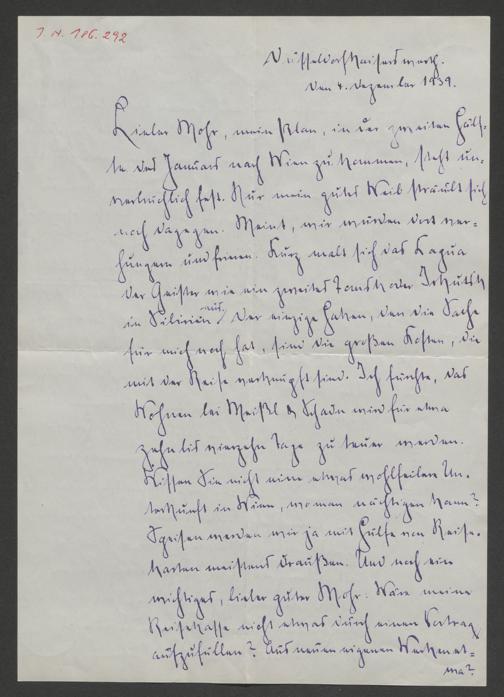 J. N. 186.292
Düsseldorf-Kaiserswerth.
den 4. Dezember 1939.
Lieber Mohr, mein Plan, in der zweiten Hälf-
te des Januars nach Wien zu kommen, steht un-
verbrüchlich fest. Nur mein gutes Weib sträubt sich
noch dagegen. Meint, wir würden dort ver-
hungern und frieren. Kurz malt sich das Kapua
der Geister wie ein zweites Tomsk oder Irkutsk
in Sibirien aus. Der einzige Haken, den die Sache
für mich noch hat, sind die großen Kosten, die
mit der Reise verknüpft sind. Ich fürchte, das
Wohnen bei Meißl & Schadn wird für etwa
zehn bis vierzehn Tage zu teuer werden.
Wissen Sie nicht eine etwas wohlfeilere Un-
terkunft in Wien, wo man nächtigen kann?
Speisen werden wir ja mit Hülfe von Reise-
karten meistens draußen. Und noch ein
wichtiges, lieber guter Mohr: Wäre meine
Reisekasse nicht etwas durch einen Vortrag
aufzufüllen? Aus neuen eigenen Werken et-
wa?